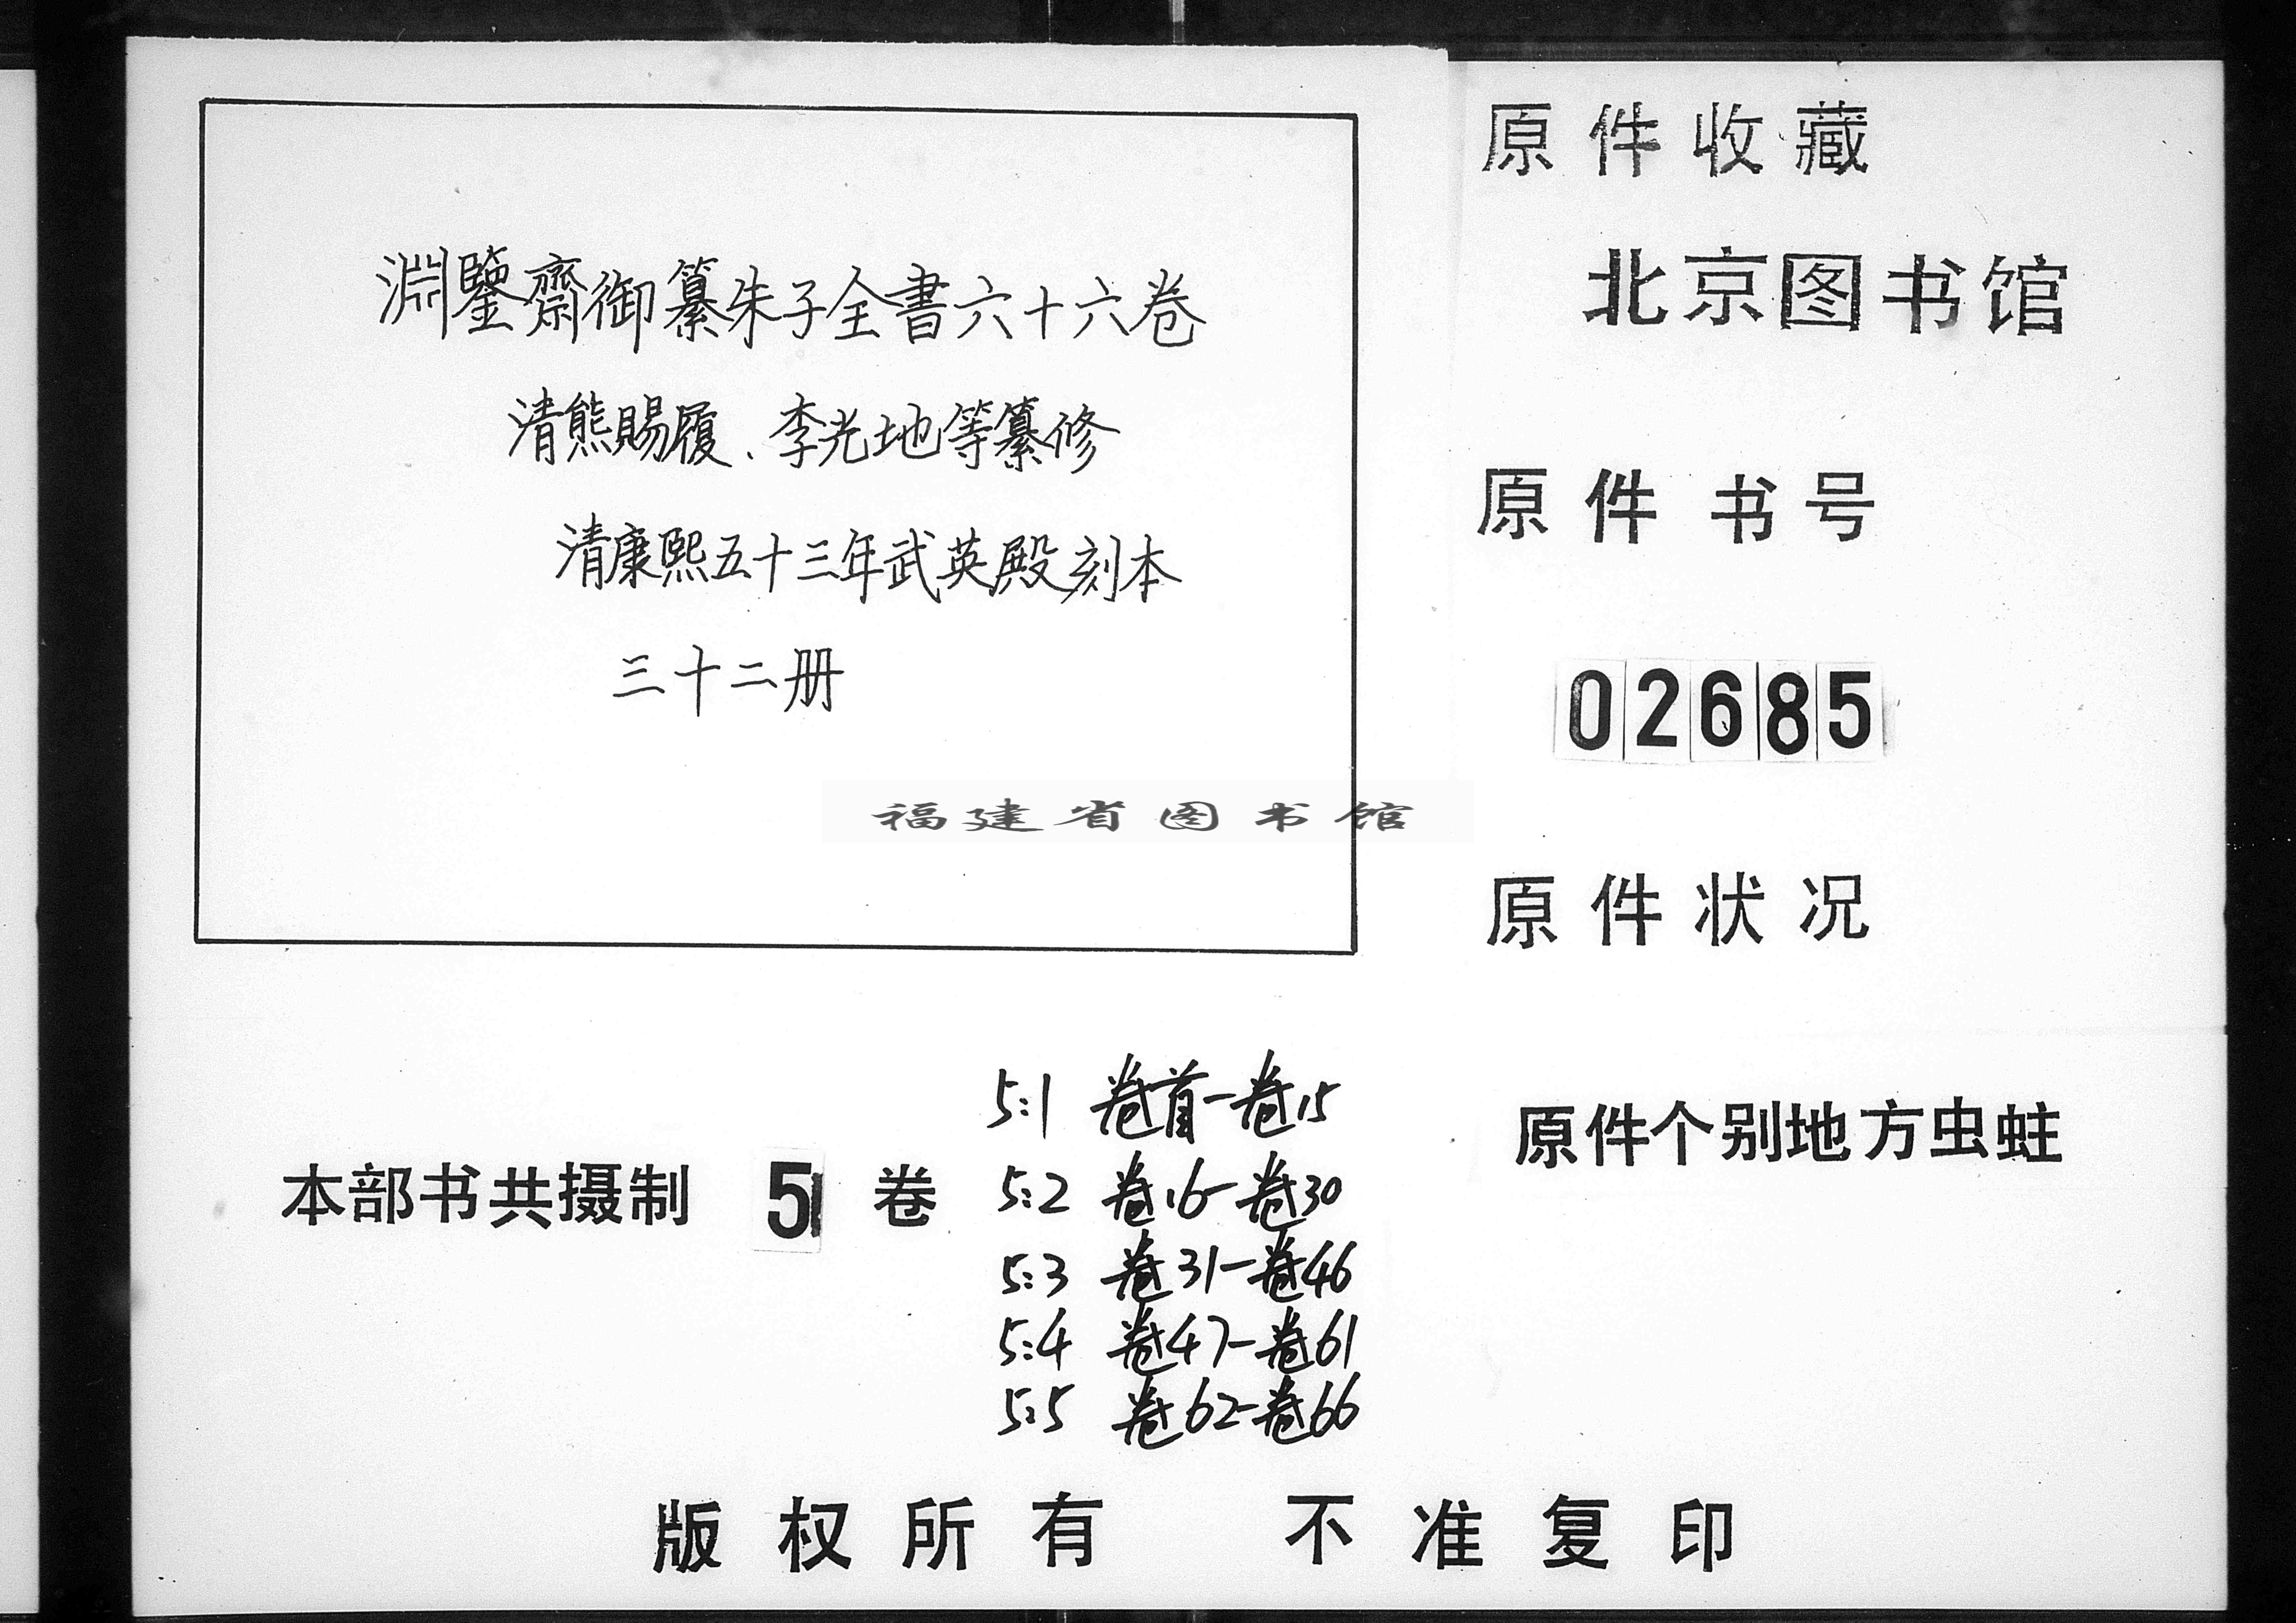 淵鑒齋御纂朱子全書六十六卷
清熊賜履、李光地等纂修
清康熙五十三年武英殿刻本
三十二册
原件收藏
北京图书馆
原件书号
02685
原件状况
原件个别地方虫蛀
福建省图书馆
本部书共摄制 5 卷
5:1 卷首—卷15
5:2 卷16—卷30
5:3 卷31—卷46
5:4 卷47—卷61
5:5 卷62—卷66
版权所有 不准复印